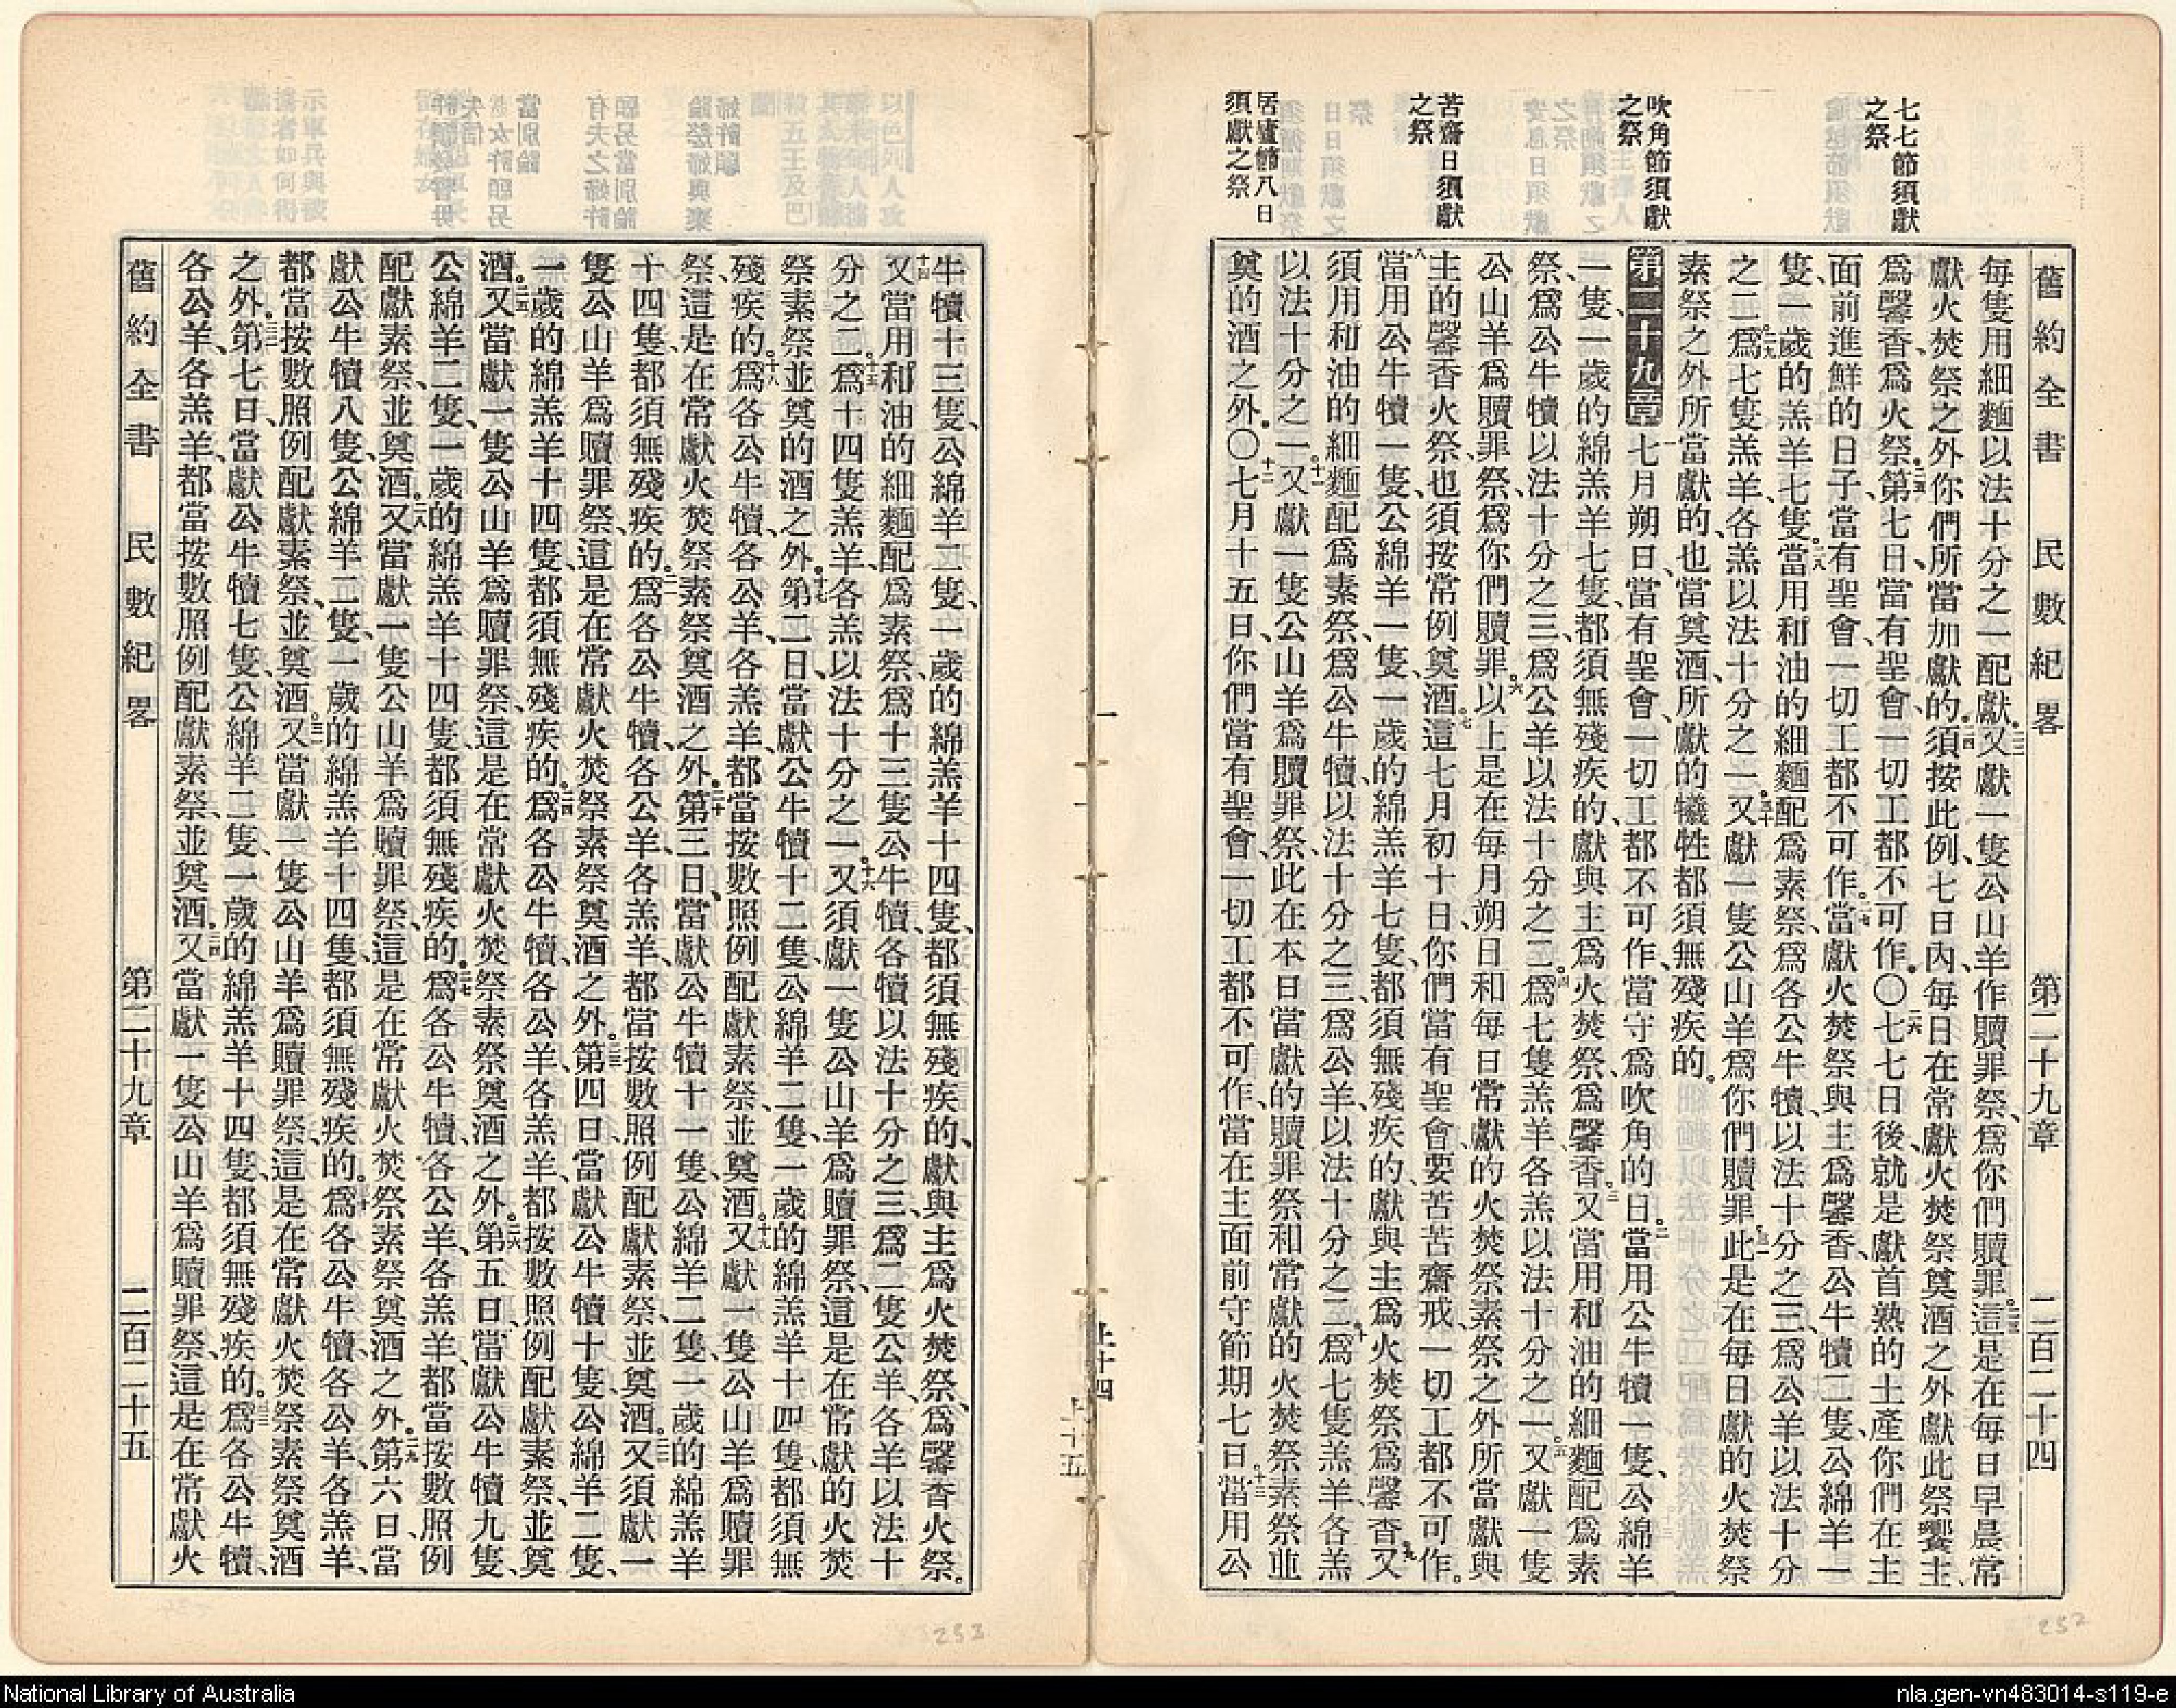 舊約全書 民數紀畧 第二十九章 二百二十四
七七節須獻
之祭
吹角節須獻
之祭
苦齋日須獻
之祭
居廬節八日
須獻之祭
每隻用細麵以法十分之一配獻。二二又獻一隻公山羊作贖罪祭、爲你們贖罪。二三這是在每日早晨常
獻火焚祭之外你們所當加獻的。二四須按此例、七日內、每日在常獻火焚祭奠酒之外獻此祭饗主、
爲馨香、爲火祭。二五第七日、當有聖會、一切工都不可作。〇二六七七日後、就是獻首熟的土產你們在主
面前進鮮的日子、當有聖會、一切工都不可作。二七當獻火焚祭與主爲馨香、公牛犢二隻、公綿羊一
隻、一歲的羔羊七隻。二八當用和油的細麵配爲素祭、爲各公牛犢、以法十分之三、爲公羊以法十分
之二、二九爲七隻羔羊、各羔以法十分之一。三十又獻一隻公山羊、爲你們贖罪。三一此是在每日獻的火焚祭
素祭之外所當獻的、也當奠酒、所獻的犧牲都須無殘疾的。
第二十九章 一七月朔日、當有聖會、一切工都不可作、當守爲吹角的日。二當用公牛犢一隻、公綿羊
一隻、一歲的綿羔羊七隻、都須無殘疾的、獻與主爲火焚祭、爲馨香。三又當用和油的細麵配爲素
祭、爲公牛犢以法十分之三、爲公羊以法十分之二。四爲七隻羔羊、各羔以法十分之一。五又獻一隻
公山羊爲贖罪祭、爲你們贖罪。六以上是在每月朔日和每日常獻的火焚祭素祭之外所當獻與
主的馨香火祭、也須按常例奠酒。七這七月初十日、你們當有聖會、要苦苦齋戒、一切工都不可作。
八當用公牛犢一隻、公綿羊一隻、一歲的綿羔羊七隻、都須無殘疾的、獻與主爲火焚祭、爲馨香。九又
須用和油的細麵配爲素祭、爲公牛犢、以法十分之三、爲公羊、以法十分之二、十爲七隻羔羊、各羔
以法十分之一。十一又獻一隻公山羊爲贖罪祭、此在本日當獻的贖罪祭和常獻的火焚祭素祭並
奠的酒之外。〇十二七月十五日、你們當有聖會、一切工都不可作、當在主面前守節期七日。十三當用公
牛犢十三隻、公綿羊二隻、一歲的綿羔羊十四隻、都須無殘疾的、獻與主爲火焚祭、爲馨香火祭。
十四又當用和油的細麵配爲素祭、爲十三隻公牛犢、各犢以法十分之三、爲二隻公羊、各羊以法十
分之二。十五爲十四隻羔羊、各羔以法十分之一。十六又須獻一隻公山羊爲贖罪祭、這是在常獻的火焚
祭素祭並奠的酒之外。十七第二日、當獻公牛犢十二隻、公綿羊二隻、一歲的綿羔羊十四隻、都須無
殘疾的。十八爲各公牛犢、各公羊、各羔羊、都當按數照例配獻素祭、並奠酒。十九又獻一隻公山羊爲贖罪
祭、這是在常獻火焚祭素祭奠酒之外。二十第三日、當獻公牛犢十一隻、公綿羊二隻、一歲的綿羔羊
十四隻、都須無殘疾的。二一爲各公牛犢、各公羊、各羔羊、都當按數照例配獻素祭、並奠酒。二二又須獻一
隻公山羊爲贖罪祭、這是在常獻火焚祭素祭奠酒之外。二三第四日、當獻公牛犢十隻、公綿羊二隻、
一歲的綿羔羊十四隻、都須無殘疾的。二四爲各公牛犢、各公羊、各羔羊、都按數照例配獻素祭、並奠
酒。二五又當獻一隻公山羊爲贖罪祭、這是在常獻火焚祭素祭奠酒之外。二六第五日、當獻公牛犢九隻、
公綿羊二隻、一歲的綿羔羊十四隻、都須無殘疾的。二七爲各公牛犢、各公羊、各羔羊、都當按數照例
配獻素祭、並奠酒。二八又當獻一隻公山羊爲贖罪祭、這是在常獻火焚祭素祭奠酒之外。二九第六日、當
獻公牛犢八隻、公綿羊二隻、一歲的綿羔羊十四隻、都須無殘疾的。三十爲各公牛犢、各公羊、各羔羊、
都當按數照例配獻素祭、並奠酒。三一又當獻一隻公山羊爲贖罪祭、這是在常獻火焚祭素祭奠酒
之外。三二第七日、當獻公牛犢七隻、公綿羊二隻、一歲的綿羔羊十四隻、都須無殘疾的。三三爲各公牛犢、
各公羊、各羔羊、都當按數照例配獻素祭、並奠酒。三四又當獻一隻公山羊爲贖罪祭、這是在常獻火
舊約全書 民數紀畧 第二十九章 二百二十五
252
253
National Library of Australia
nla.gen-vn483014-s119-e